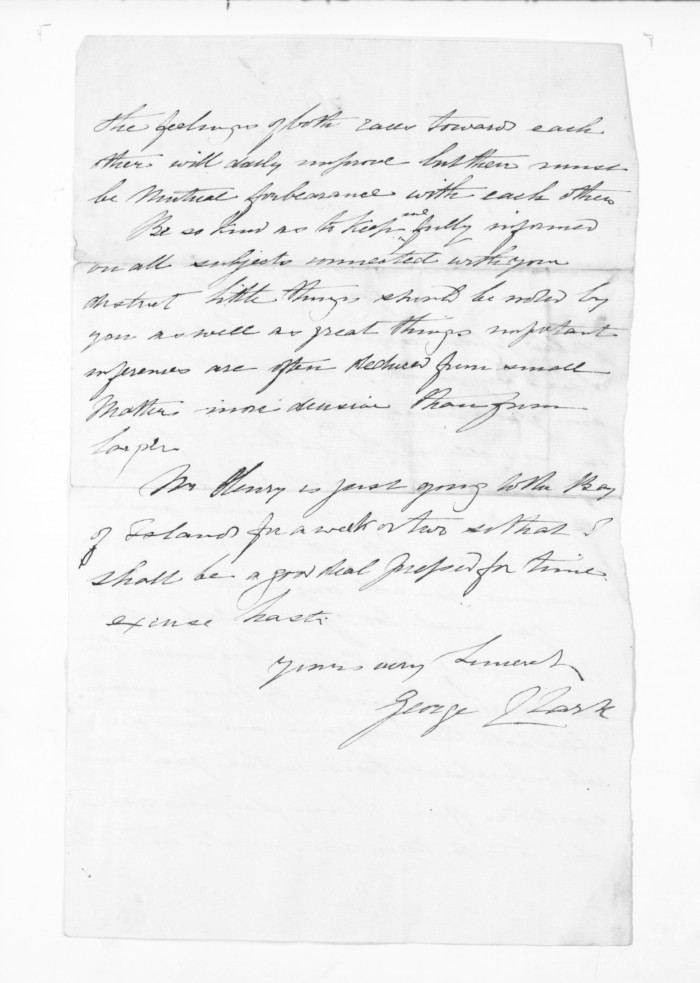 the feelings of both races toward each
other will daily improve but their must
be Mutual forbearance with each other
Be so kind as to keep me fully informed
on all subjects connected with your
district little things should be noted by
you as well as great things important
inferences are often deduced from small
Matters more decisive than from
larger
Mr Henry is just going to the Bay
of Islands for a week or two so that I
shall be a good deal pressed for time
excuse haste
Yours very Sincerely
George Clark